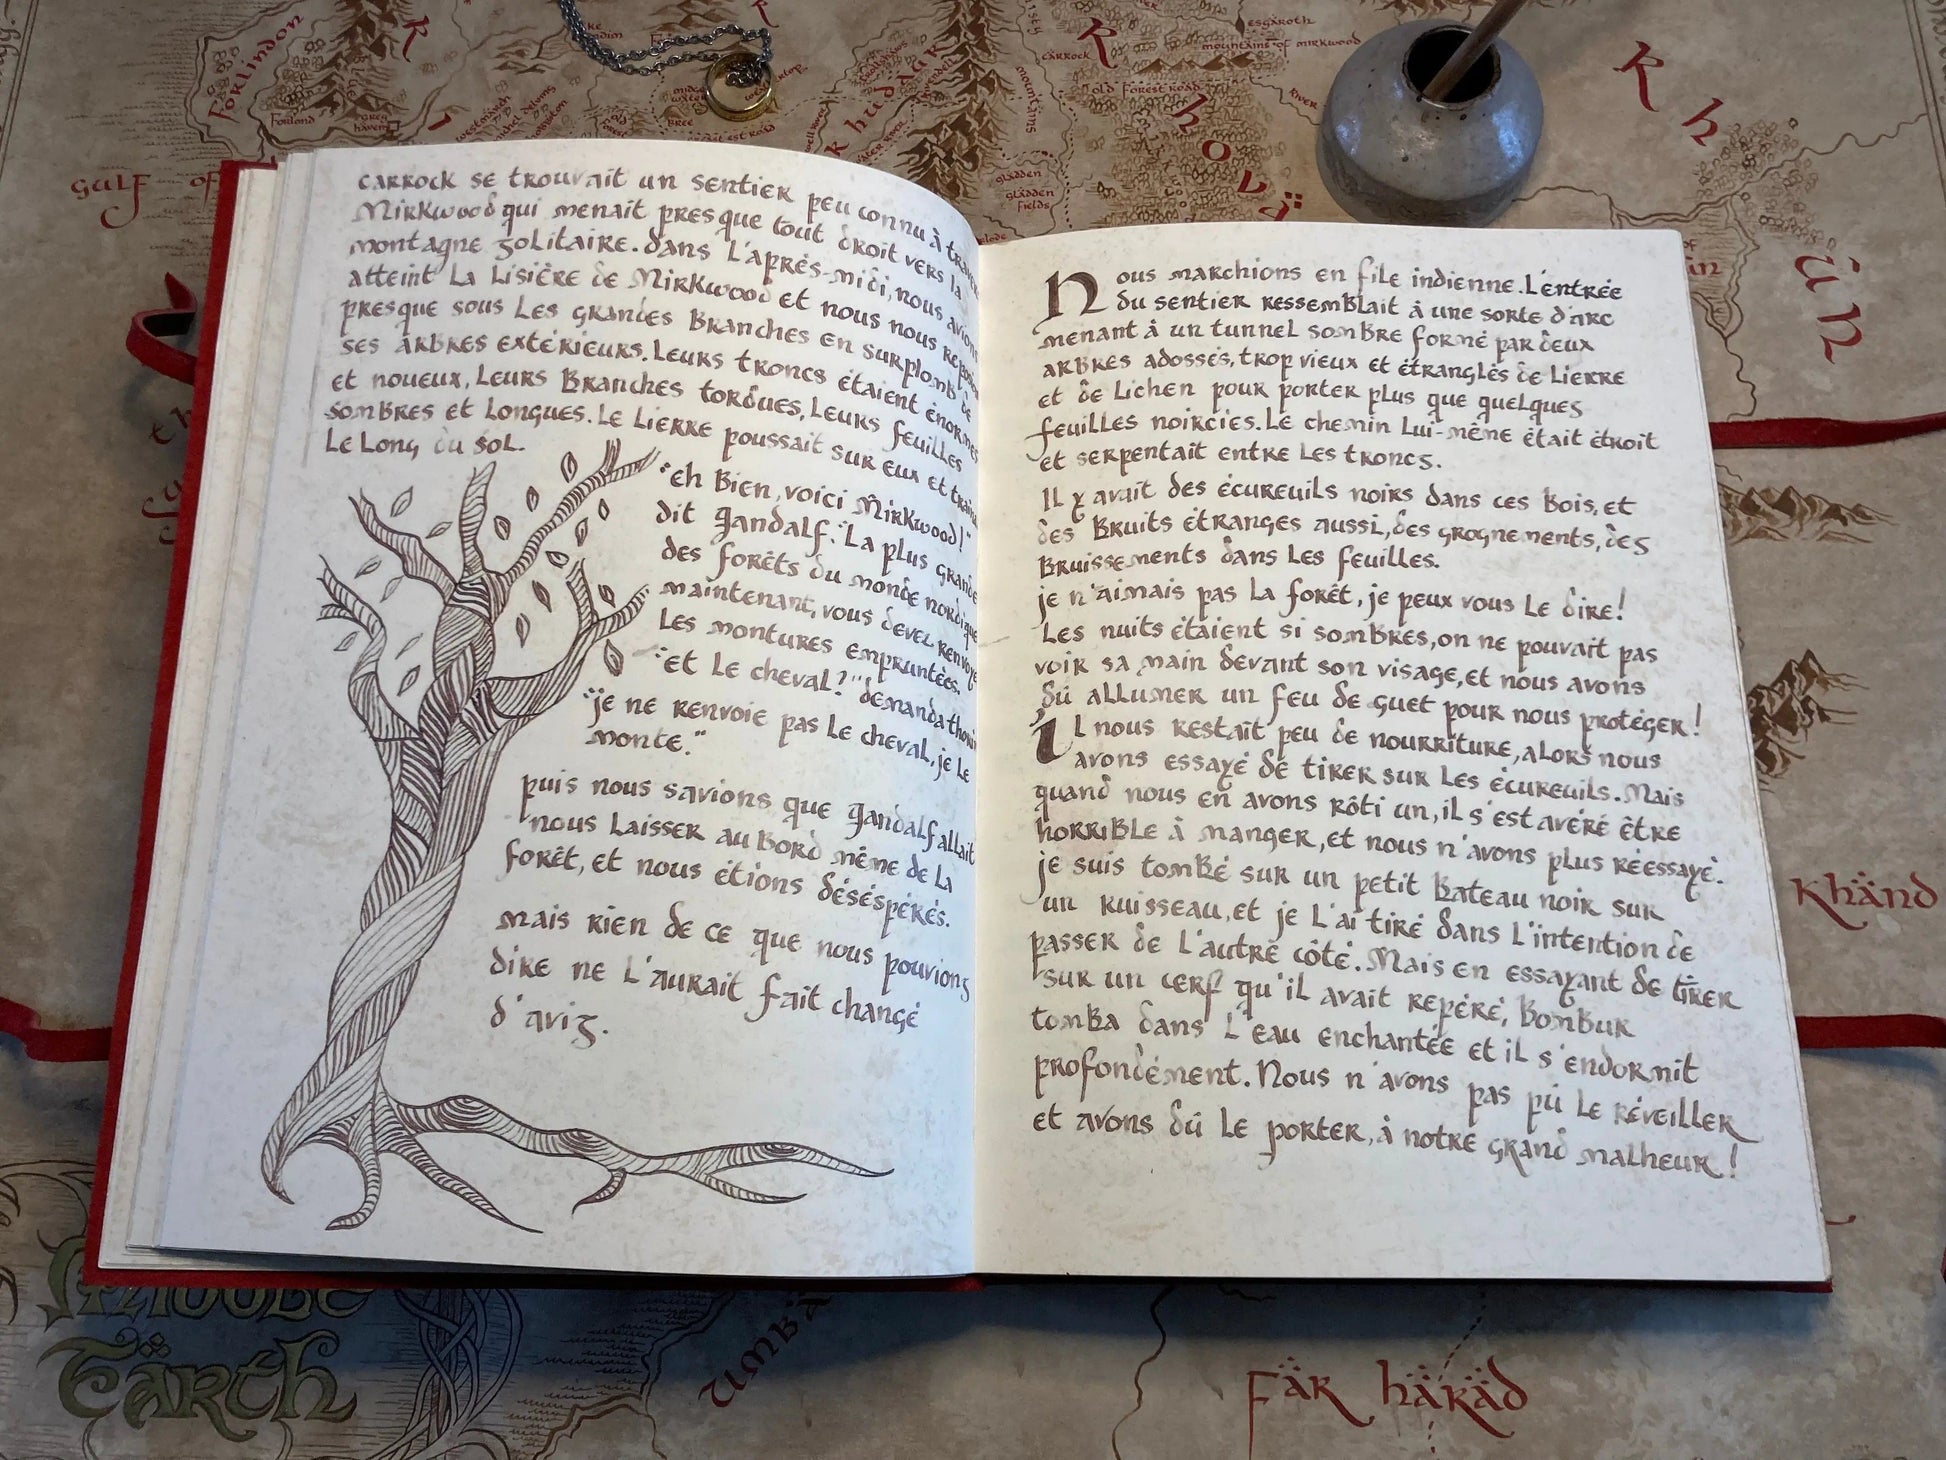 carrock se trouvait un sentier peu connu à travers
Mirkwood qui menait presque tout droit vers la
montagne solitaire. dans l'après-midi, nous avions
atteint la lisière de Mirkwood et nous nous reposions
presque sous les grandes branches en surplomb de
ses arbres extérieurs. Leurs troncs étaient énormes
et noueux, leurs branches tordues, leurs feuilles
sombres et longues. Le lierre poussait sur eux et
le long du sol.
"eh bien, voici Mirkwood!"
dit gandalf. "La plus grande
des forêts du monde nordique
maintenant, vous devez renvoyer
les montures empruntées."
"et le cheval?" demanda thorin
"je ne renvoie pas le cheval, je le
monte."
puis nous savions que gandalf allait
nous laisser au bord même de la
forêt, et nous étions désespérés.
mais rien de ce que nous pouvions
dire ne l'aurait fait changé
d'avis.
Nous marchions en file indienne. L'entrée
du sentier ressemblait à une sorte d'arc
menant à un tunnel sombre formé par deux
arbres adossés, trop vieux et étranglés de lierre
et de lichen pour porter plus que quelques
feuilles noircies. Le chemin lui-même était étroit
et serpentait entre les troncs.
Il y avait des écureuils noirs dans ces bois, et
des bruits étranges aussi, des grognements, des
bruissements dans les feuilles.
je n'aimais pas la forêt, je peux vous le dire!
Les nuits étaient si sombres, on ne pouvait pas
voir sa main devant son visage, et nous avons
dû allumer un feu de guet pour nous protéger!
Il nous restait peu de nourriture, alors nous
avons essayé de tirer sur les écureuils. Mais
quand nous en avons rôti un, il s'est avéré être
horrible à manger, et nous n'avons plus réessayé.
je suis tombé sur un petit bateau noir sur
un ruisseau, et je l'ai tiré dans l'intention de
passer de l'autre côté. Mais en essayant de tirer
sur un cerf qu'il avait repéré, Bombur
tomba dans l'eau enchantée et il s'endormit
profondément. Nous n'avons pas pû le réveiller
et avons dû le porter, à notre grand malheur!
Forlindon
Forlond
grey
havens
gulf of
Bree
carrock
esgaroth
mountains of mirkwood
old Forest road
River
gladden
gladden
fields
Rhûn
Khänd
Middle
Eärth
Umbä
Fär häräd